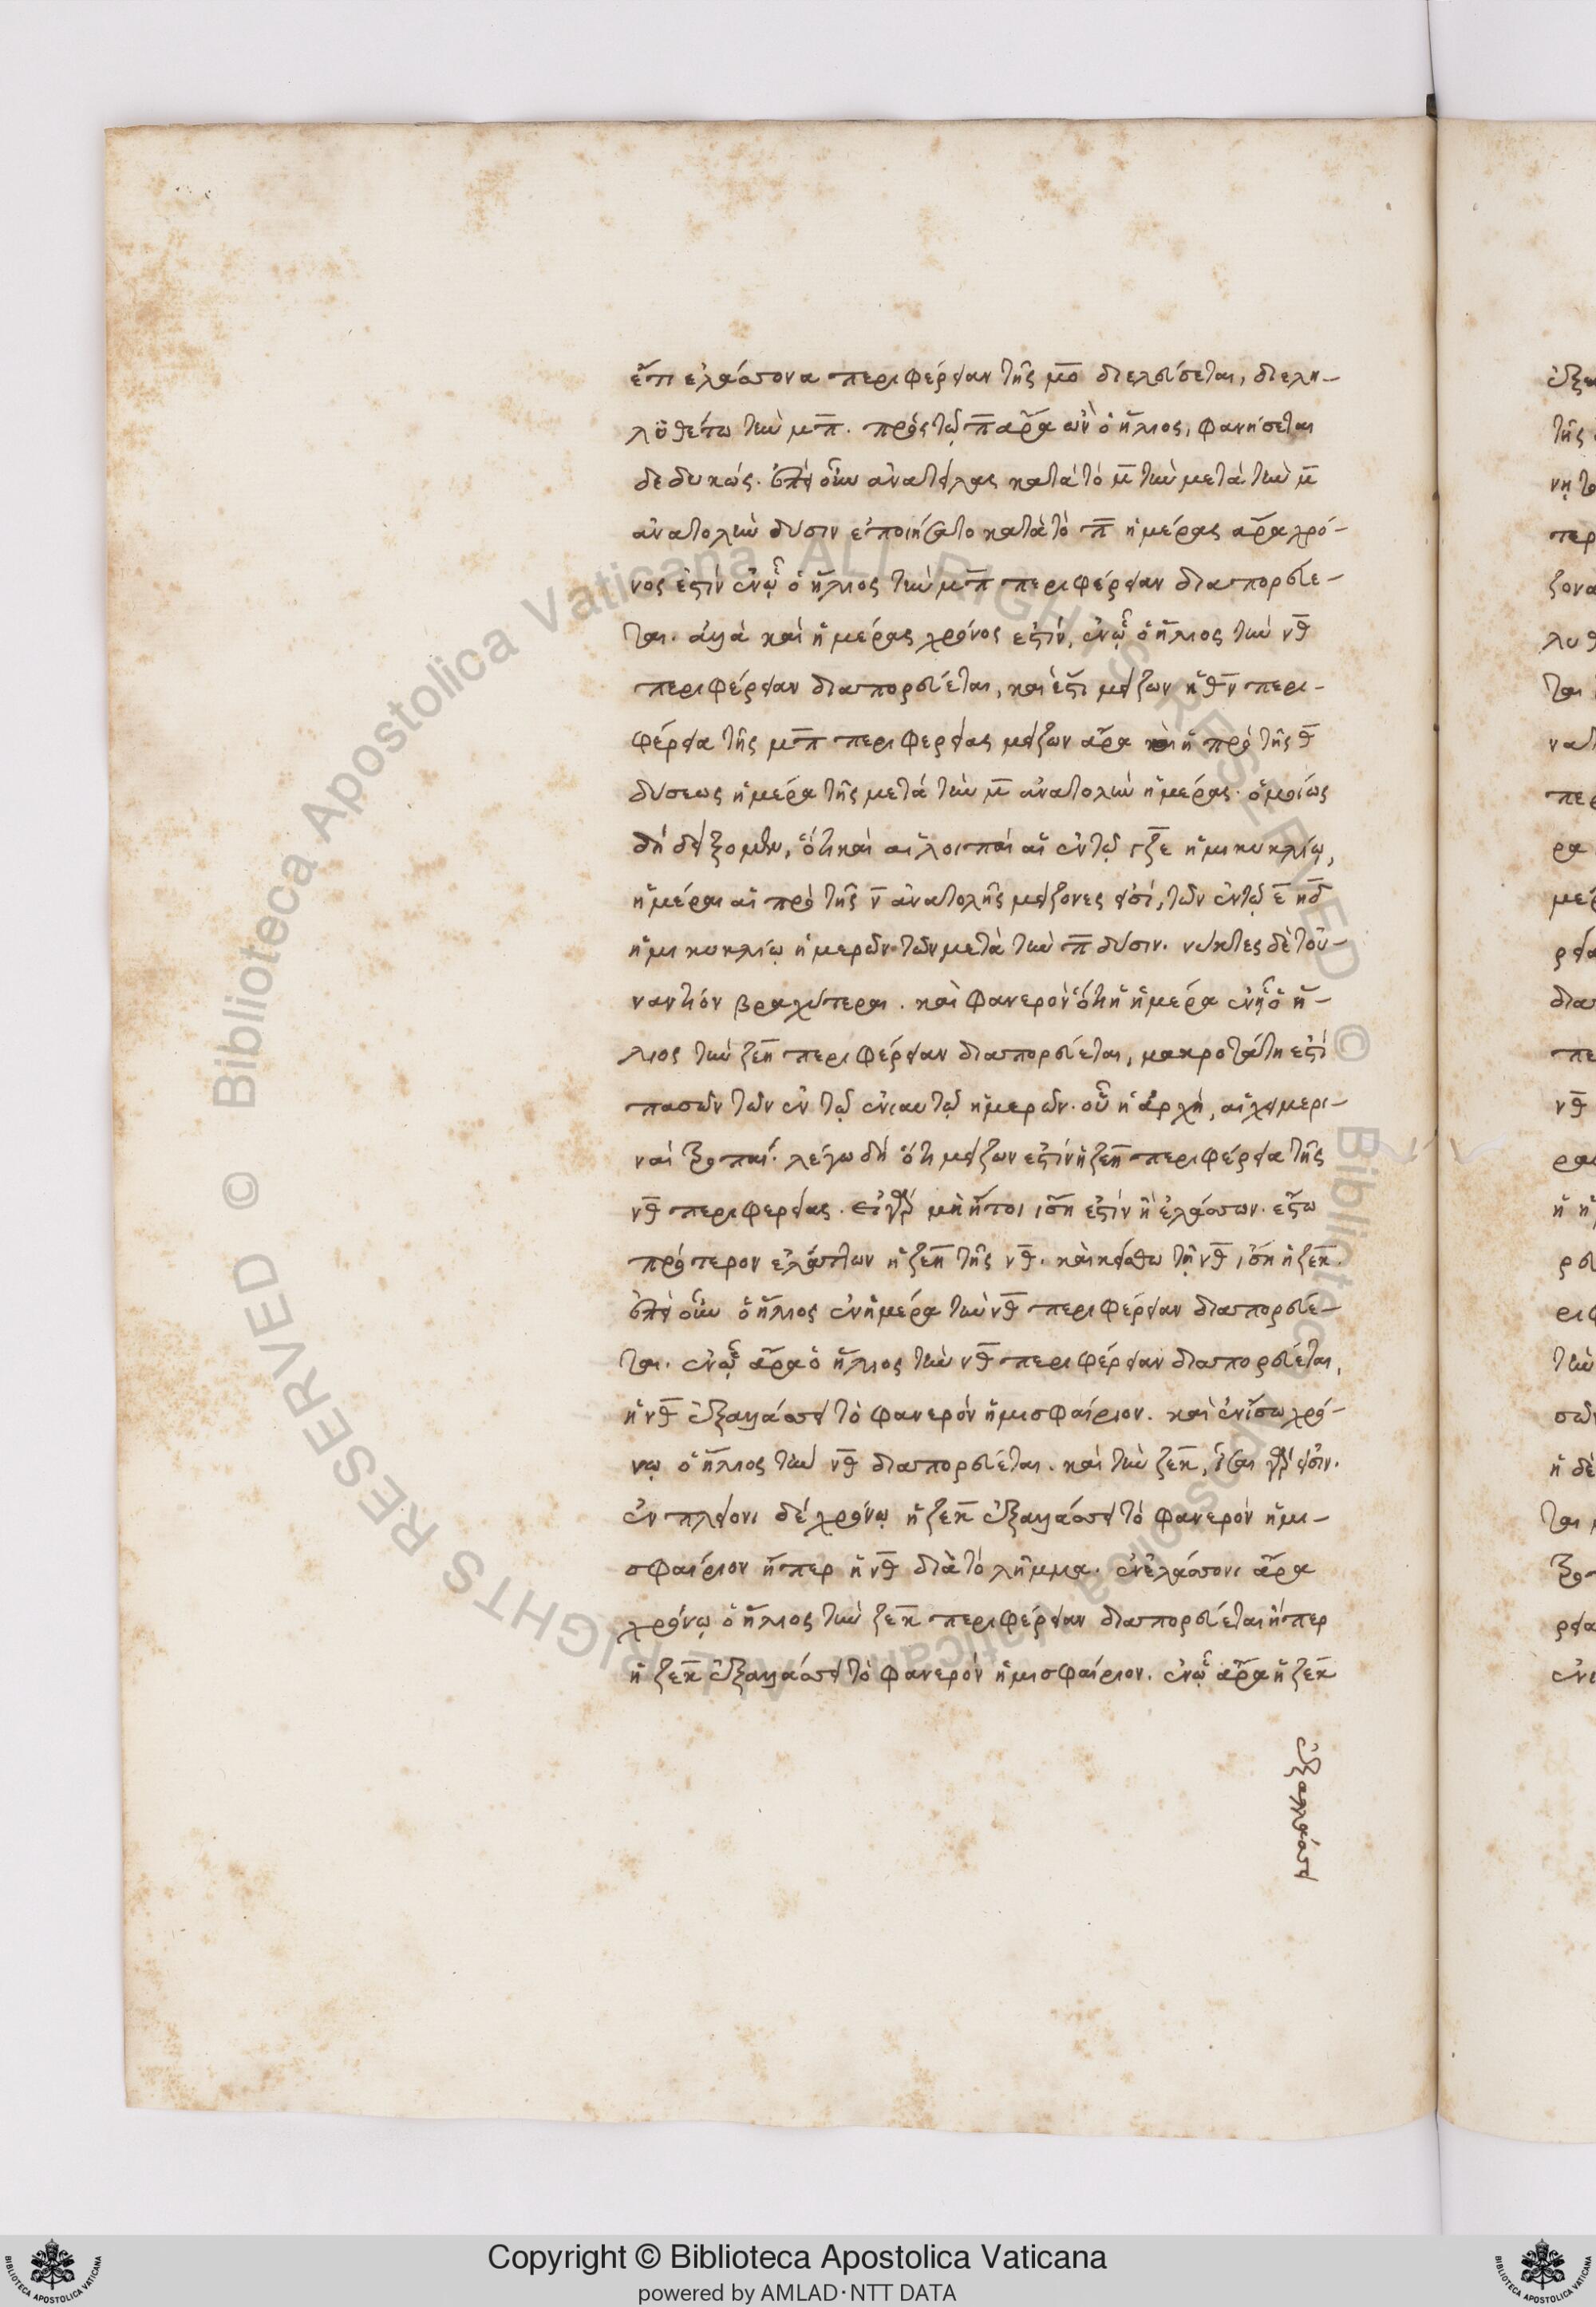 ἔτι ἐλάσσονα περιφέρειαν τῆς μ̅ο̅ διελεύσεται, διελη-
λυθέτω τὴν μ̅π̅. πρὸς τῷ π̅ ἄρα ὢν ὁ ἥλιος, φανήσεται
δεδυκώς. ἐπεὶ οὖν ἀνατείλας κατὰ τὸ μ̅ τὴν μετὰ τὴν μ̅
ἀνατολὴν δύσιν ἐποιήσατο κατὰ τὸ π̅ ἡμέρας ἄρα χρό-
νος ἐστὶν ἐν ᾧ ὁ ἥλιος τὴν μ̅π̅ περιφέρειαν διαπορεύε-
ται. ἀλλὰ καὶ ἡμέρας χρόνος ἐστίν, ἐν ᾧ ὁ ἥλιος τὴν ν̅θ̅
περιφέρειαν διαπορεύεται, καὶ ἔστι μείζων ἡ θ̅ν̅ περι-
φέρεια τῆς μ̅π̅ περιφερείας μείζων ἄρα καὶ ἡ πρὸ τῆς θ̅
δύσεως ἡμέρα τῆς μετὰ τὴν μ̅ ἀνατολὴν ἡμέρας. ὁμοίως
δὴ δείξομεν, ὅτι καὶ αἱ λοιπαὶ αἱ ἐν τῷ γ̅ζ̅ε̅ ἡμικυκλίῳ,
ἡμέραι αἱ πρὸ τῆς ν̅ ἀνατολῆς μείζονες εἰσὶ, τῶν ἐν τῷ ε̅η̅δ̅
ἡμικυκλίῳ ἡμερῶν τῶν μετὰ τὴν π̅ δύσιν. νύκτες δὲ τοὐ-
ναντίον βραχύτεραι. καὶ φανερὸν ὅτι ἡ ἡμέρα ἐν ᾗ ὁ ἥ-
λιος τὴν ζ̅ε̅η̅ περιφέρειαν διαπορεύεται, μακροτάτη ἐστὶ
πασῶν τῶν ἐν τῷ ἐνιαυτῷ ἡμερῶν. οὗ ἡ ἀρχὴ, αἱ χειμερι-
ναὶ τροπαί. λέγω δὴ ὅτι μείζων ἐστὶν ἡ ζ̅ε̅η̅ περιφέρεια τῆς
ν̅θ̅ περιφερείας. εἰ γὰρ μὴ ἤτοι ἴση ἐστὶν ἢ ἐλάσσων. ἔστω
πρότερον ἐλάττων ἡ ζ̅ε̅η̅ τῆς ν̅θ̅. καὶ κείσθω τῇ ν̅θ̅, ἴση ἡ ζ̅ε̅κ̅.
ἐπεὶ οὖν ὁ ἥλιος ἐν ἡμέρᾳ τὴν ν̅θ̅ περιφέρειαν διαπορεύε-
ται. ἐν ᾧ ἄρα ὁ ἥλιος τὴν ν̅θ̅ περιφέρειαν διαπορεύεται,
ἡ ν̅θ̅ ἐξαλλάσσει τὸ φανερὸν ἡμισφαίριον. καὶ ἐν ἴσῳ χρό-
νῳ ὁ ἥλιος τὴν ν̅θ̅ διαπορεύεται. καὶ τὴν ζ̅ε̅κ̅, ἴσαι γὰρ εἰσιν.
ἐν πλείονι δὲ χρόνῳ ἡ ζ̅ε̅κ̅ ἐξαλλάσσει τὸ φανερὸν ἡμι-
σφαίριον ἤπερ ἡ ν̅θ̅ διὰ τὸ λῆμμα. ἐν ἐλάσσονι ἄρα
χρόνῳ ὁ ἥλιος τὴν ζ̅ε̅κ̅ περιφέρειαν διαπορεύεται ἤπερ
ἡ ζ̅ε̅κ̅ ἐξαλλάσσει τὸ φανερὸν ἡμισφαίριον. ἐν ᾧ ἄρα ἡ ζ̅ε̅κ̅
ἐξαλλάσσει
© Biblioteca Apostolica Vaticana ALL RIGHTS RESERVED © Biblioteca Apostolica Vaticana ALL RIGHTS RESERVED
Copyright © Biblioteca Apostolica Vaticana
powered by AMLAD·NTT DATA
BIBLIOTECA APOSTOLICA VATICANA
BIBLIOTECA APOSTOLICA VATICANA